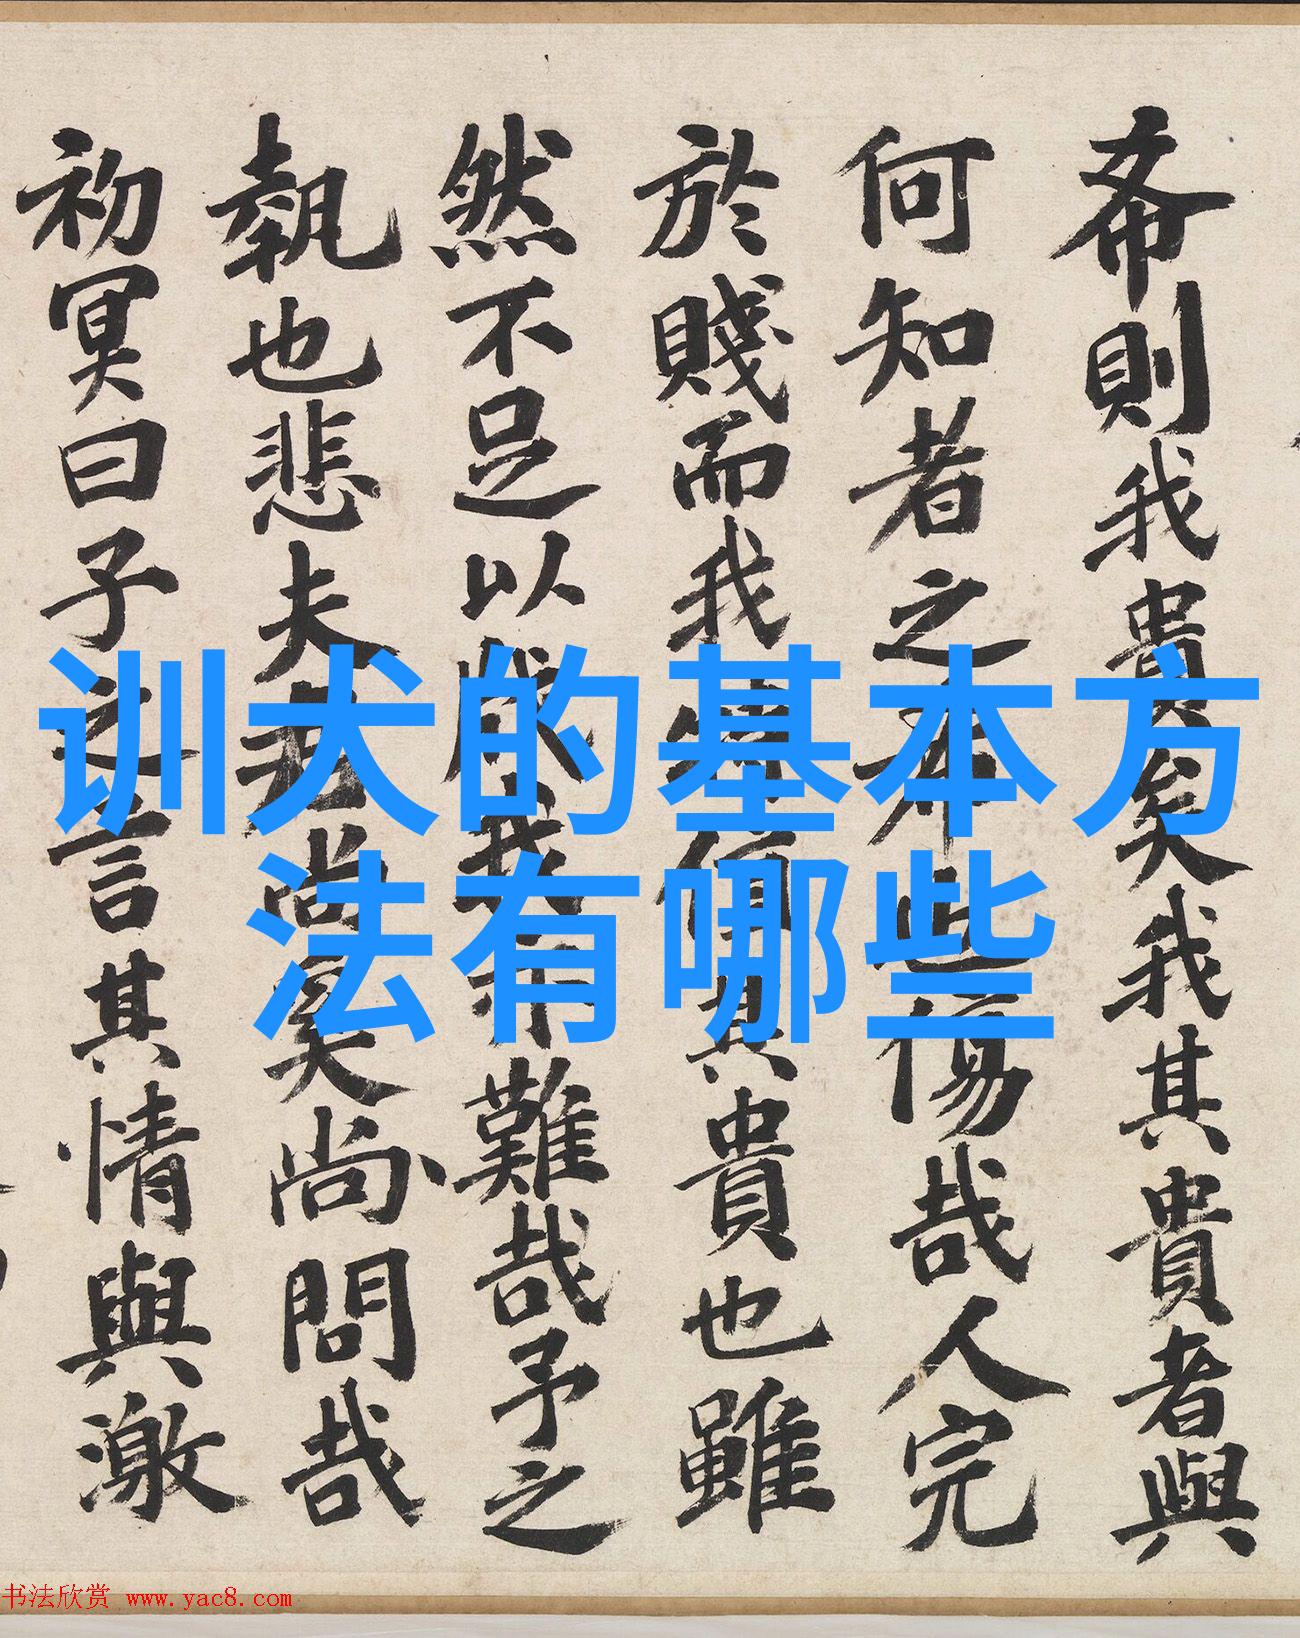 希則我貴矣我其貴者與
何知者之不
傷哉人完
於賤而我
其貴也雖
然不足以
難哉予之
執也悲夫
尚矣尚問哉
初冥曰子之言其情與激
训犬的基本方
法有哪些
书法欣赏 www.yac8.com